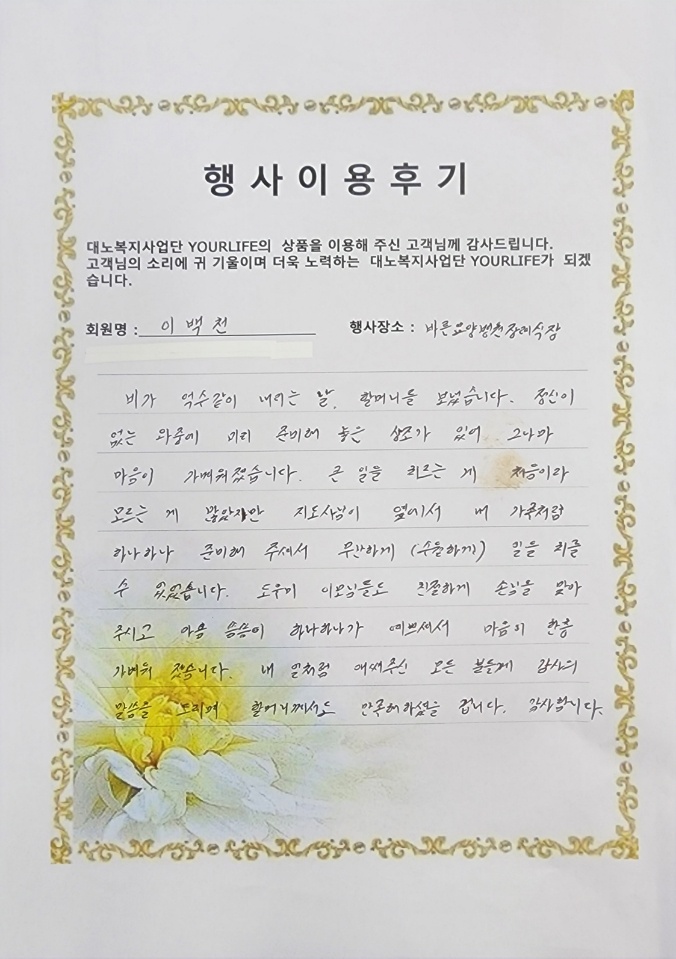 행사이용후기
대노복지사업단 YOURLIFE의 상품을 이용해 주신 고객님께 감사드립니다.
고객님의 소리에 귀 기울이며 더욱 노력하는 대노복지사업단 YOURLIFE가 되겠
습니다.
회원명 : 이백천 행사장소 : 바른요양병원장례식장
비가 억수같이 내리는 날, 할머니를 보냈습니다. 정신이
없는 와중에 미리 준비해 놓은 상조가 있어 그나마
마음이 가벼워졌습니다. 큰 일을 치르는 게 처음이라
모르는 게 많았지만 지도사님이 옆에서 내 가족처럼
하나하나 준비해 주셔서 무난하게 (수월하게) 일을 치를
수 있었습니다. 도우미 이모님들도 친절하게 손님을 맞아
주시고 마음 씀씀이 하나하나가 예쁘셔서 마음이 한층
가벼워 졌습니다. 내 일처럼 애써주신 모든 분들께 감사의
말씀을 드리며 할머니께서도 만족해하셨을 겁니다. 감사합니다.